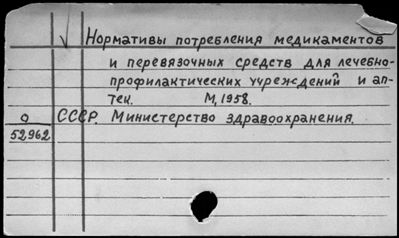 Нормативы потребления медикаментов
и перевязочных средств для лечебно-
профилактических учреждений и ап-
тек. М, 1958.
О СССР. Министерство здравоохранения.
52962